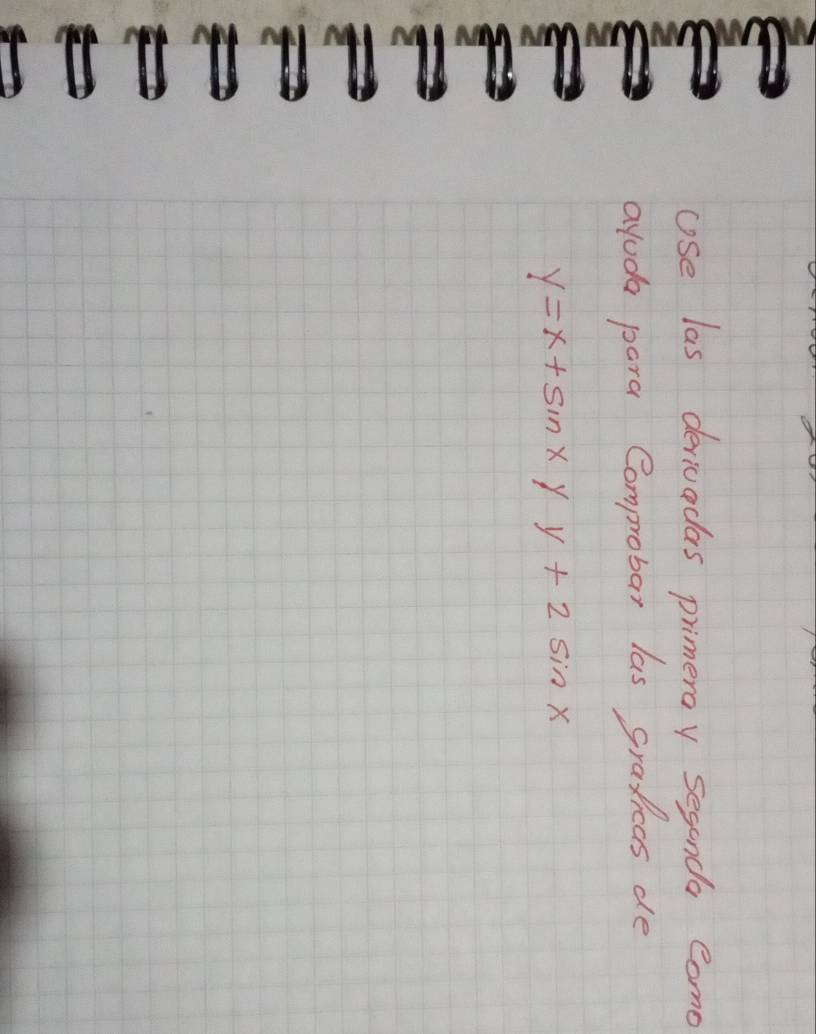 Use las derivadas primera y segunda como
ayuda para Comprobar las graficas de
y = x + sin x y y + 2 sin x